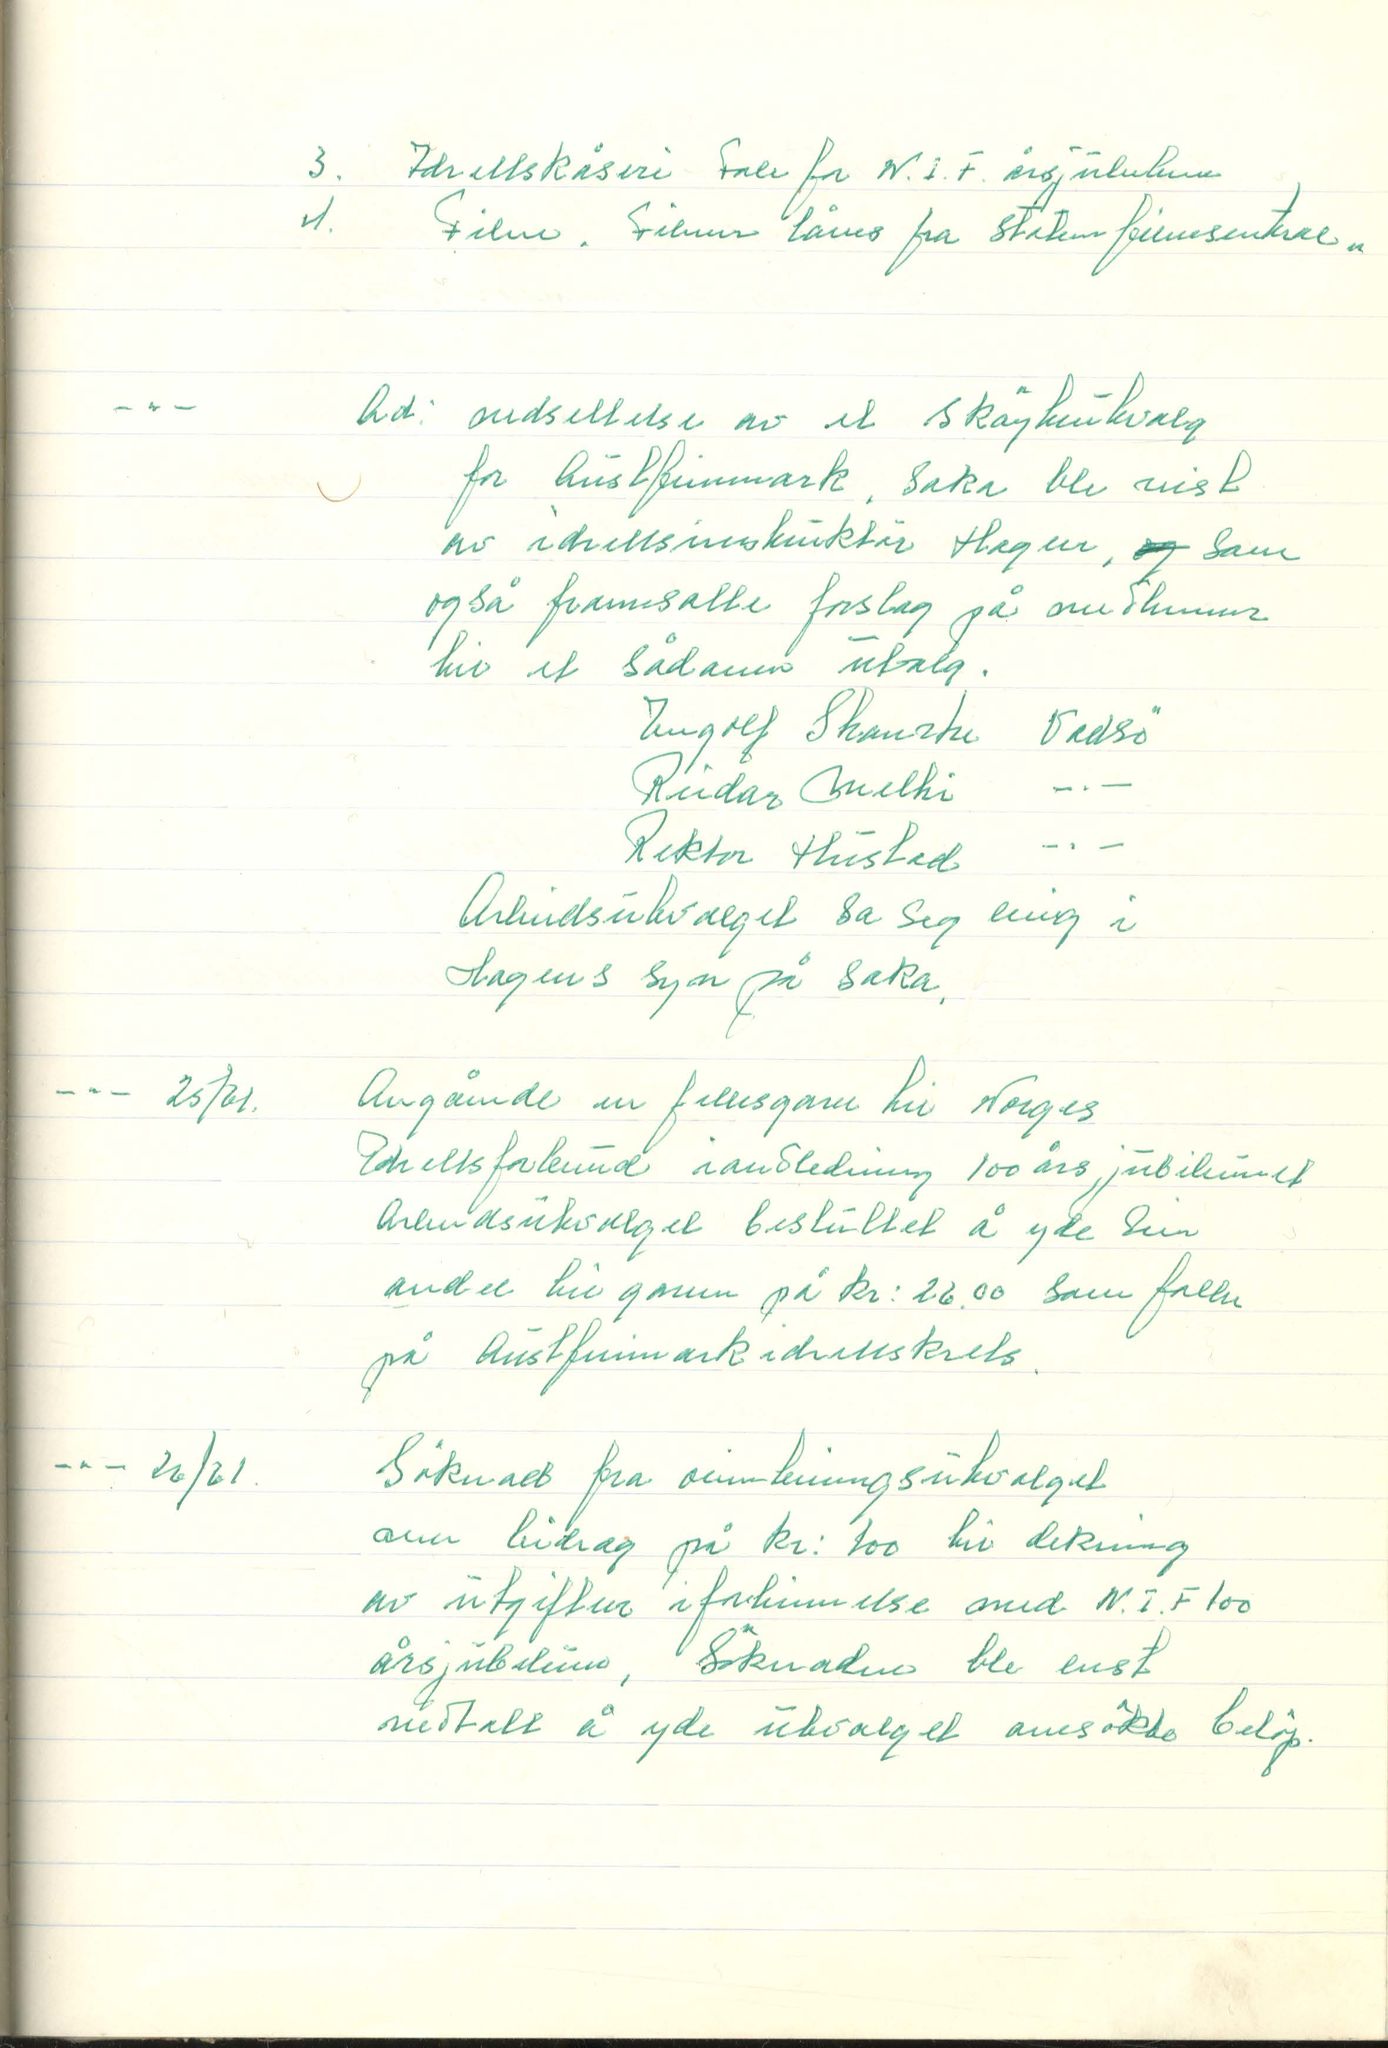 3. Idrettskåseri Tale for N.I.F. årsjubileum
4. Film. Filmer lånes fra statens filmsentral "
- " - Ad: nedsettelse av et skøyteutvalg
for Austfinnmark, Saka ble reist
av idrettsinstruktør Hagen, som
også framsatte forslag på medlemmer
til et sådann utvalg.
Ingolf Skanche Vadsö
Reidar Melhi - " -
Rektor Hustad - " -
Arbeidsutvalget sa seg enig i
Hagens syn på saka.
- " - 25/61. Angående en fellesgave til Norges
Idrettsforbund i anledning 100 års jubileumet
Arbeidsutvalget besluttet å yde sin
andel til gaven på kr: 26.00 som faller
på Austfinnmark idrettskrets.
- " - 26/61. Söknad fra orienteringsutvalget
om bidrag på kr: 100 til dekning
av utgifter i forbinnelse med N.I.F 100
årsjubileum, Söknaden ble enst
vedtatt å yde utvalget omsökte belöp.